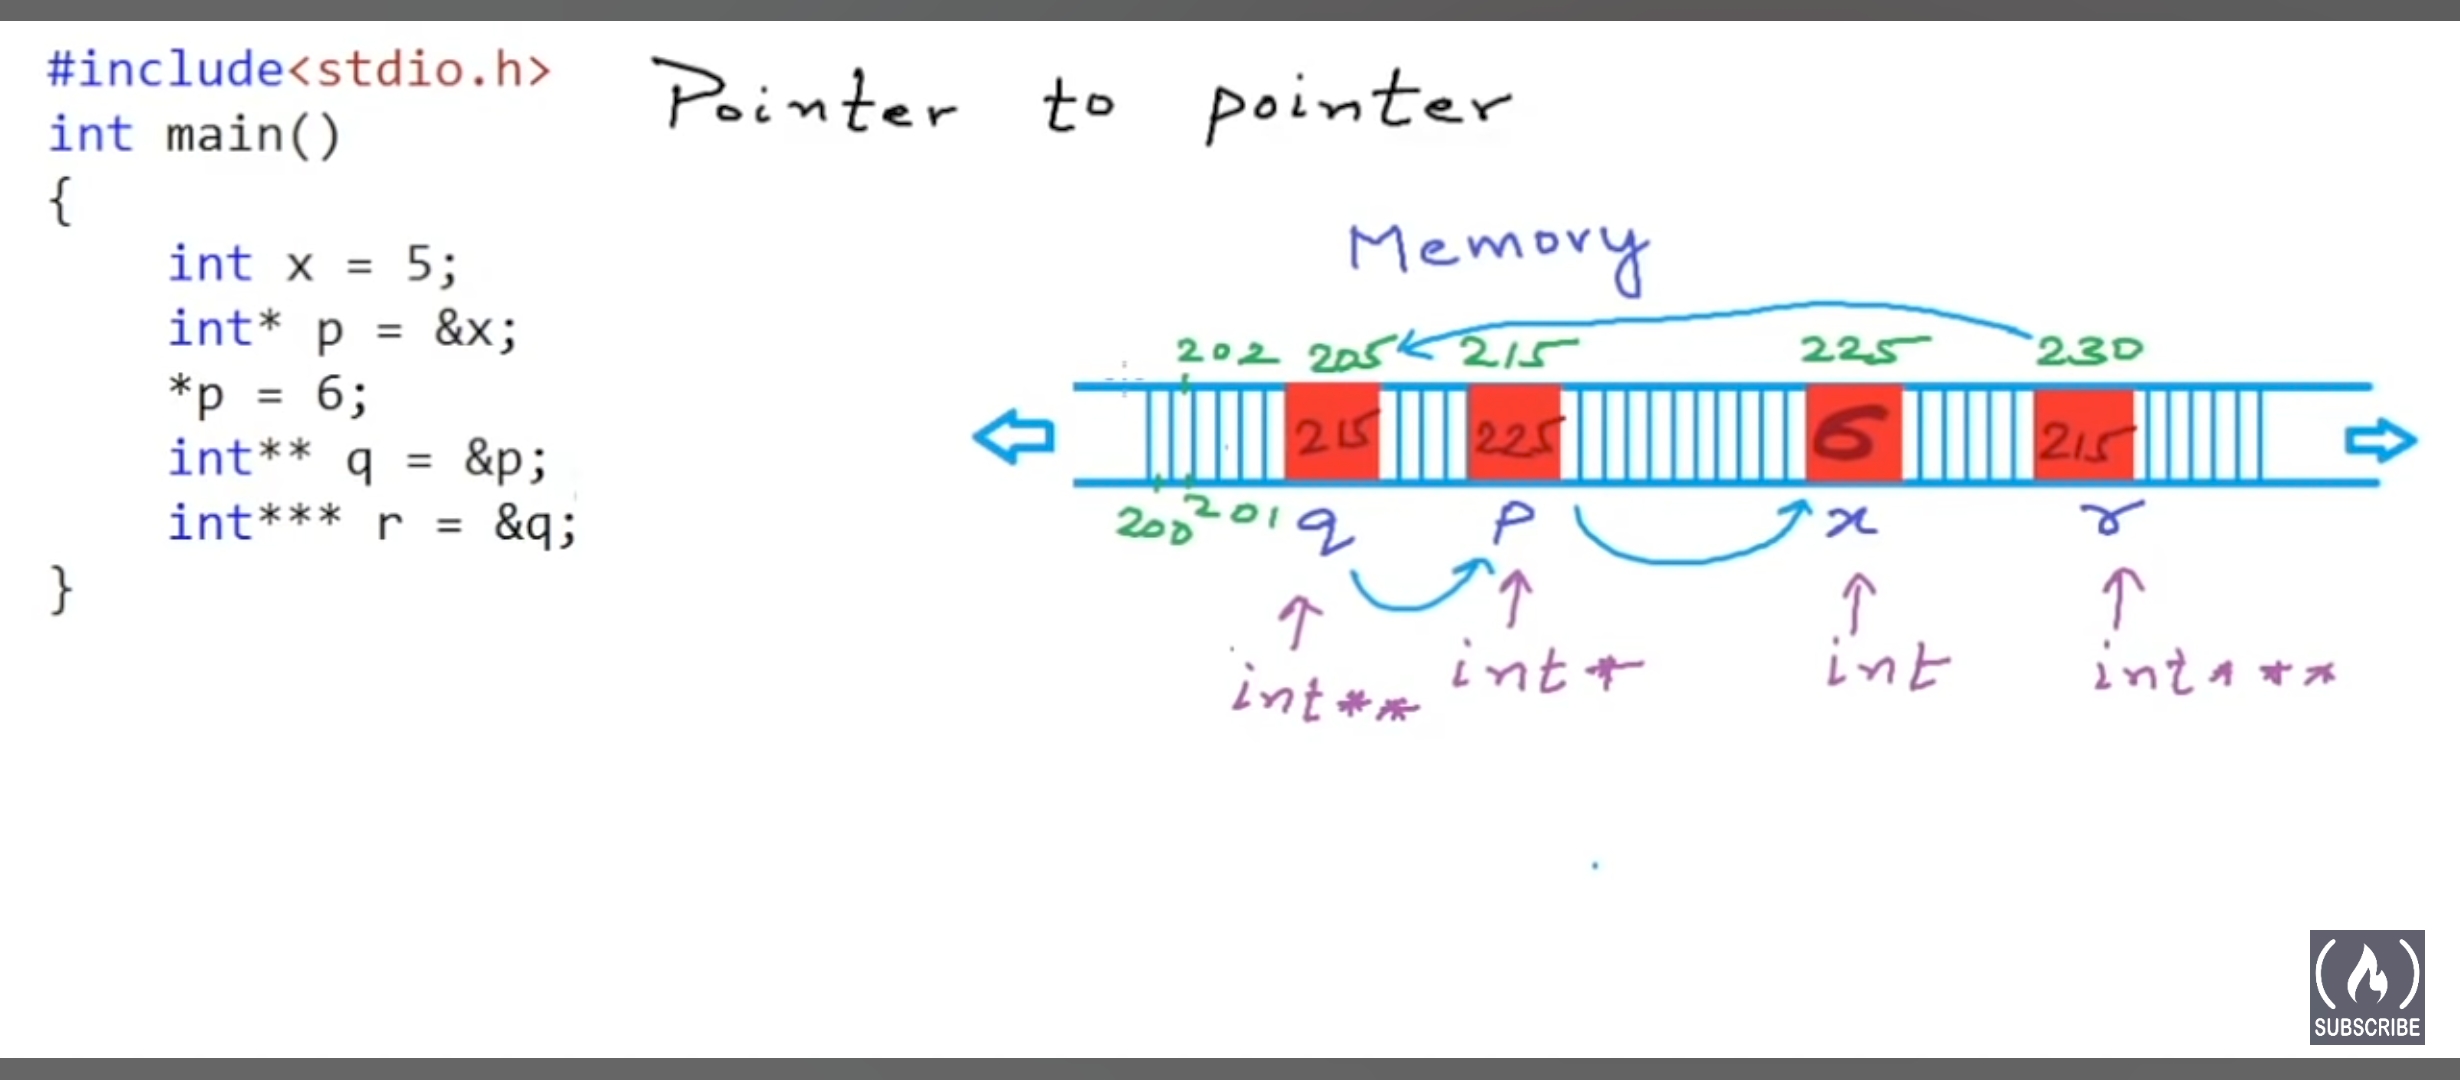 #include<stdio.h>
int main()
{
int x = 5;
int* p = &x;
*p = 6;
int** q = &p;
int*** r = &q;
}
Pointer to pointer
Memory
202 205 215 225 230
215 225 6 215
200 201 q p x r
int** int* int int***
SUBSCRIBE